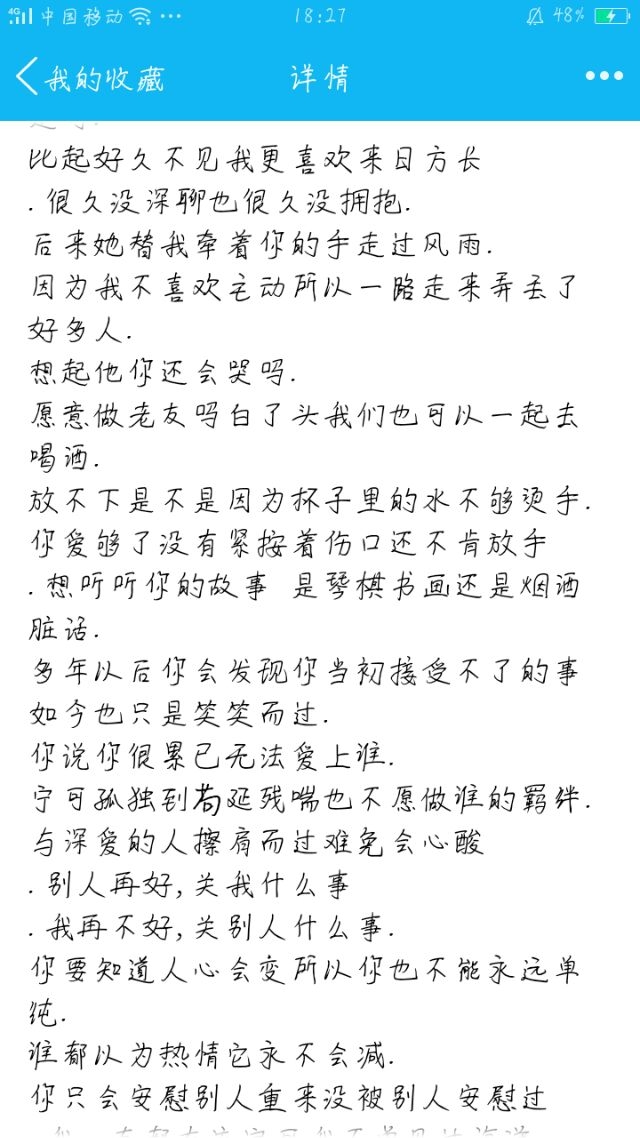 4G 中国移动 18:27 48%
我的收藏 详情
比起好久不见我更喜欢来日方长
. 很久没深聊也很久没拥抱.
后来她替我牵着你的手走过风雨.
因为我不喜欢主动所以一路走来弄丢了
好多人.
想起他你还会哭吗.
愿意做老友吗白了头我们也可以一起去
喝酒.
放不下是不是因为杯子里的水不够烫手.
你爱够了没有紧按着伤口还不肯放手
. 想听听你的故事 是琴棋书画还是烟酒
脏话.
多年以后你会发现你当初接受不了的事
如今也只是笑笑而过.
你说你很累已无法爱上谁.
宁可孤独到苟延残喘也不愿做谁的羁绊.
与深爱的人擦肩而过难免会心酸
. 别人再好, 关我什么事
. 我再不好, 关别人什么事.
你要知道人心会变所以你也不能永远单
纯.
谁都以为热情它永不会减.
你只会安慰别人重来没被别人安慰过